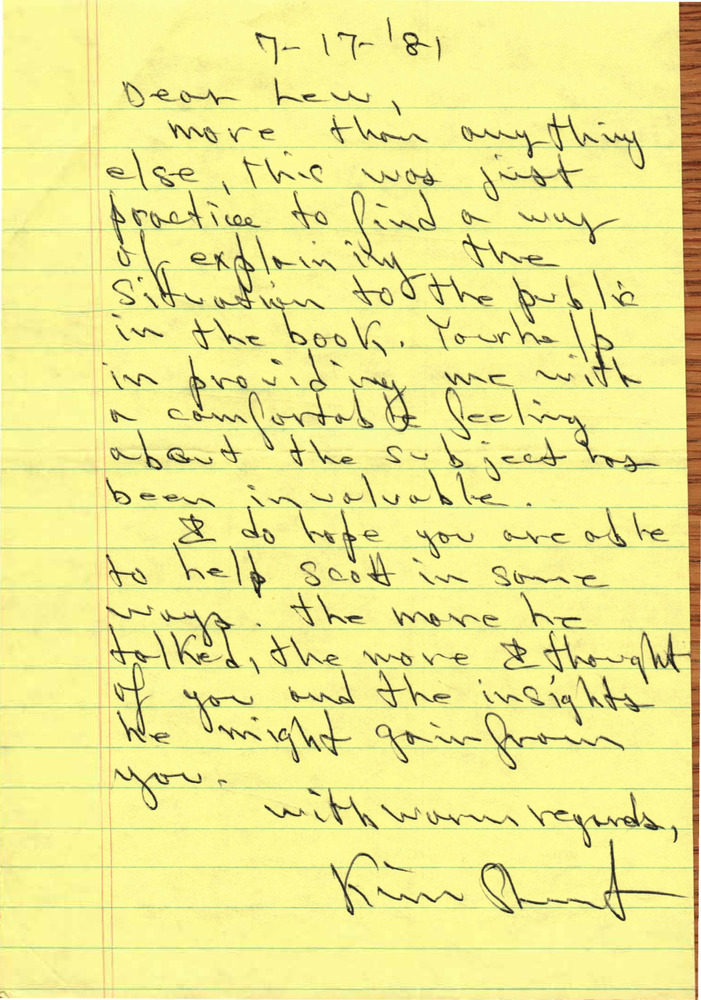 7-17-'81
Dear Lew,
more than anything
else, this was just
practice to find a way
of explaining the
situation to the public
in the book. Your help
in providing me with
a comfortable feeling
about the subject has
been invaluable.
I do hope you are able
to help Scott in some
ways. The more he
talked, the more I thought
of you and the insights
he might gain from
you.
with warm regards,
Kim